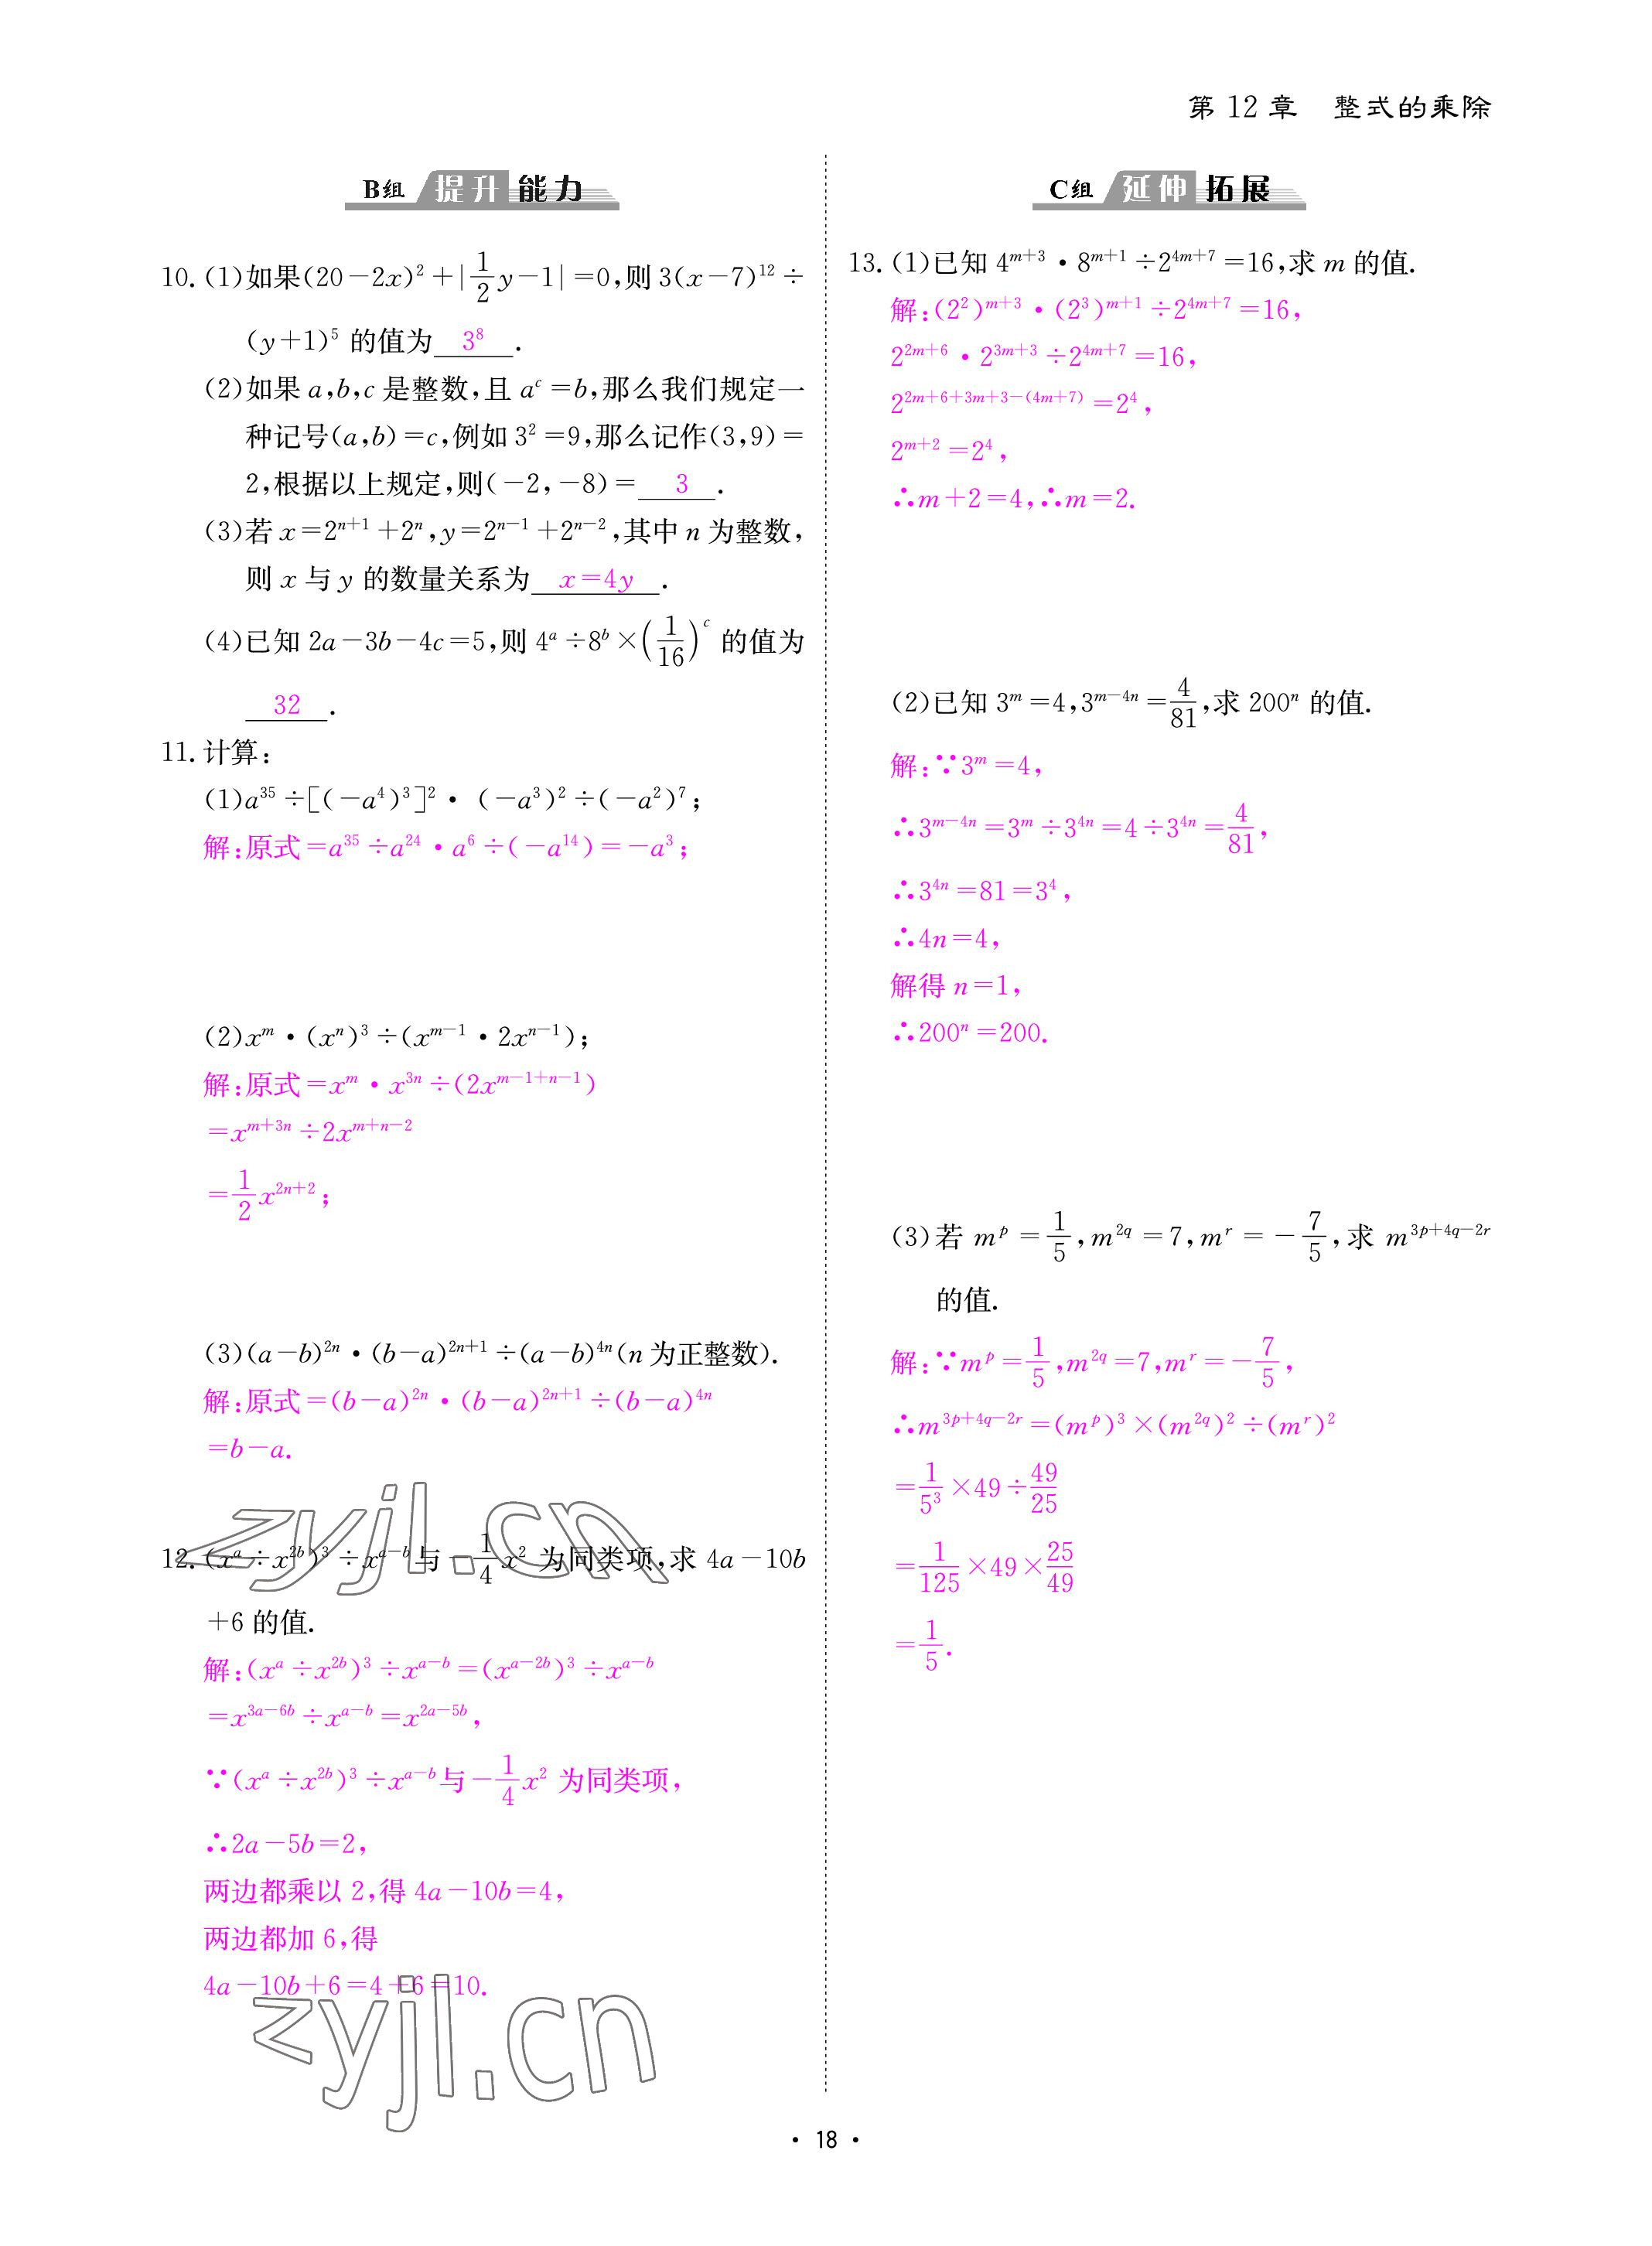 第 12 章 整式的乘除
B组 提升 能力
10. (1)如果(20-2x)²+|\frac{1}{2}y-1|=0,则 3(x-7)¹²÷
(y+1)⁵ 的值为 3⁸ .
(2)如果 a,b,c 是整数,且 a^c=b,那么我们规定一
种记号(a,b)=c,例如 3²=9,那么记作(3,9)=
2,根据以上规定,则(-2,-8)= 3 .
(3)若 x=2^{n+1}+2^n,y=2^{n-1}+2^{n-2},其中 n 为整数,
则 x 与 y 的数量关系为 x=4y .
(4)已知 2a-3b-4c=5,则 4^a÷8^b×(\frac{1}{16})^c 的值为
32 .
11. 计算:
(1)a³⁵÷[(-a⁴)³]²·(-a³)²÷(-a²)⁷;
解:原式=a³⁵÷a²⁴·a⁶÷(-a¹⁴)=-a³;
(2)x^m·(x^n)³÷(x^{m-1}·2x^{n-1});
解:原式=x^m·x^{3n}÷(2x^{m-1+n-1})
=x^{m+3n}÷2x^{m+n-2}
=\frac{1}{2}x^{2n+2};
(3)(a-b)^{2n}·(b-a)^{2n+1}÷(a-b)^{4n}(n 为正整数).
解:原式=(b-a)^{2n}·(b-a)^{2n+1}÷(b-a)^{4n}
=b-a.
zyjl.cn
12. (x^a÷x^{2b})³÷x^{a-b}与-\frac{1}{4}x² 为同类项,求 4a-10b
+6 的值.
解:(x^a÷x^{2b})³÷x^{a-b}=(x^{a-2b})³÷x^{a-b}
=x^{3a-6b}÷x^{a-b}=x^{2a-5b},
∵(x^a÷x^{2b})³÷x^{a-b}与-\frac{1}{4}x² 为同类项,
∴2a-5b=2,
两边都乘以 2,得 4a-10b=4,
两边都加 6,得
4a-10b+6=4+6=10.
zyjl.cn
C组 延伸 拓展
13. (1)已知 4^{m+3}·8^{m+1}÷2^{4m+7}=16,求 m 的值.
解:(2²)^{m+3}·(2³)^{m+1}÷2^{4m+7}=16,
2^{2m+6}·2^{3m+3}÷2^{4m+7}=16,
2^{2m+6+3m+3-(4m+7)}=2⁴,
2^{m+2}=2⁴,
∴m+2=4,∴m=2.
(2)已知 3^m=4,3^{m-4n}=\frac{4}{81},求 200^n 的值.
解:∵3^m=4,
∴3^{m-4n}=3^m÷3^{4n}=4÷3^{4n}=\frac{4}{81},
∴3^{4n}=81=3⁴,
∴4n=4,
解得 n=1,
∴200^n=200.
(3)若 m^p=\frac{1}{5},m^{2q}=7,m^r=-\frac{7}{5},求 m^{3p+4q-2r}
的值.
解:∵m^p=\frac{1}{5},m^{2q}=7,m^r=-\frac{7}{5},
∴m^{3p+4q-2r}=(m^p)³×(m^{2q})²÷(m^r)²
=\frac{1}{5³}×49÷\frac{49}{25}
=\frac{1}{125}×49×\frac{25}{49}
=\frac{1}{5}.
· 18 ·